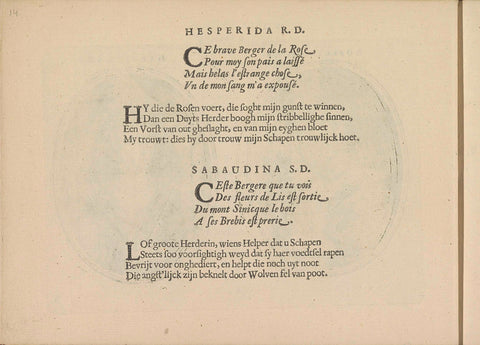 14
HESPERIDA R. D.
CE brave Berger de la Rose
Pour moy son pais a laissé
Mais helas l'estrange chose,
Vn de mon sang m'a expousé.
HY die de Rosen voert, die soght mijn gunst te winnen,
Dan een Duyts Herder boogh mijn stribbellighe sinnen,
Een Vorst van out gheslaght, en van mijn eyghen bloet
My trouwt: dies hy door trouw mijn Schapen trouwlijck hoet.
SABAUDINA S. D.
CEste Bergere que tu vois
Des fleurs de Lis est sortie
Du mont Sinicque le bois
A ses Brebis est prerie.
LOf groote Herderin, wiens Helper dat u Schapen
Steets soo voorsightigh weyd dat sy haer voedtsel rapen
Bevrijt voor onghediert, en helpt die noch uyt noot
Die angst'lijck zijn beknelt door Wolven fel van poot.